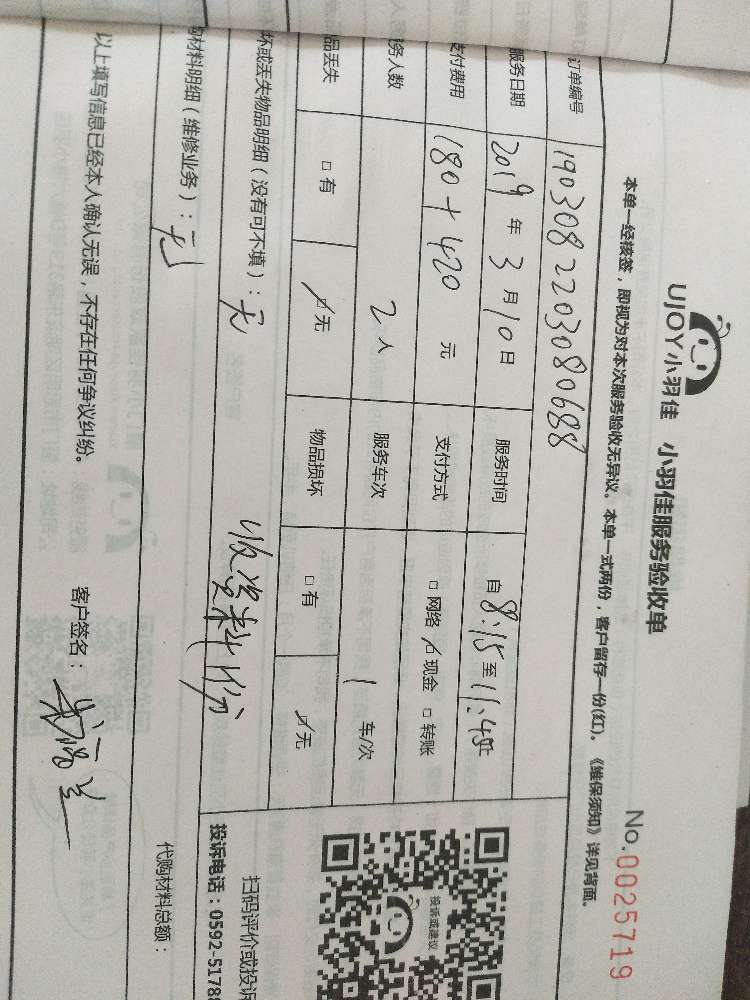 UJOY小羽佳 小羽佳服务验收单
No.0025719
本单一经核签，即视为对本次服务验收无异议。本单一式两份，客户留存一份(红)。《维保须知》详见背面。
订单编号 1903082203080688
服务日期 2019年3月10日 服务时间 自8:15至11:45止
支付费用 180+420元 支付方式 □网络 ☑现金 □转账
务人数 2人 服务车次 1车/次
品丢失 □有 ☑无 物品损坏 □有 ☑无
坏或丢失物品明细（没有可不填）：无
收资料1份
购材料明细（维修业务）：无
代购材料总额：
以上填写信息已经本人确认无误，不存在任何争议纠纷。
客户签名：
投诉或建议
扫码评价或投诉
投诉电话：0592-5178